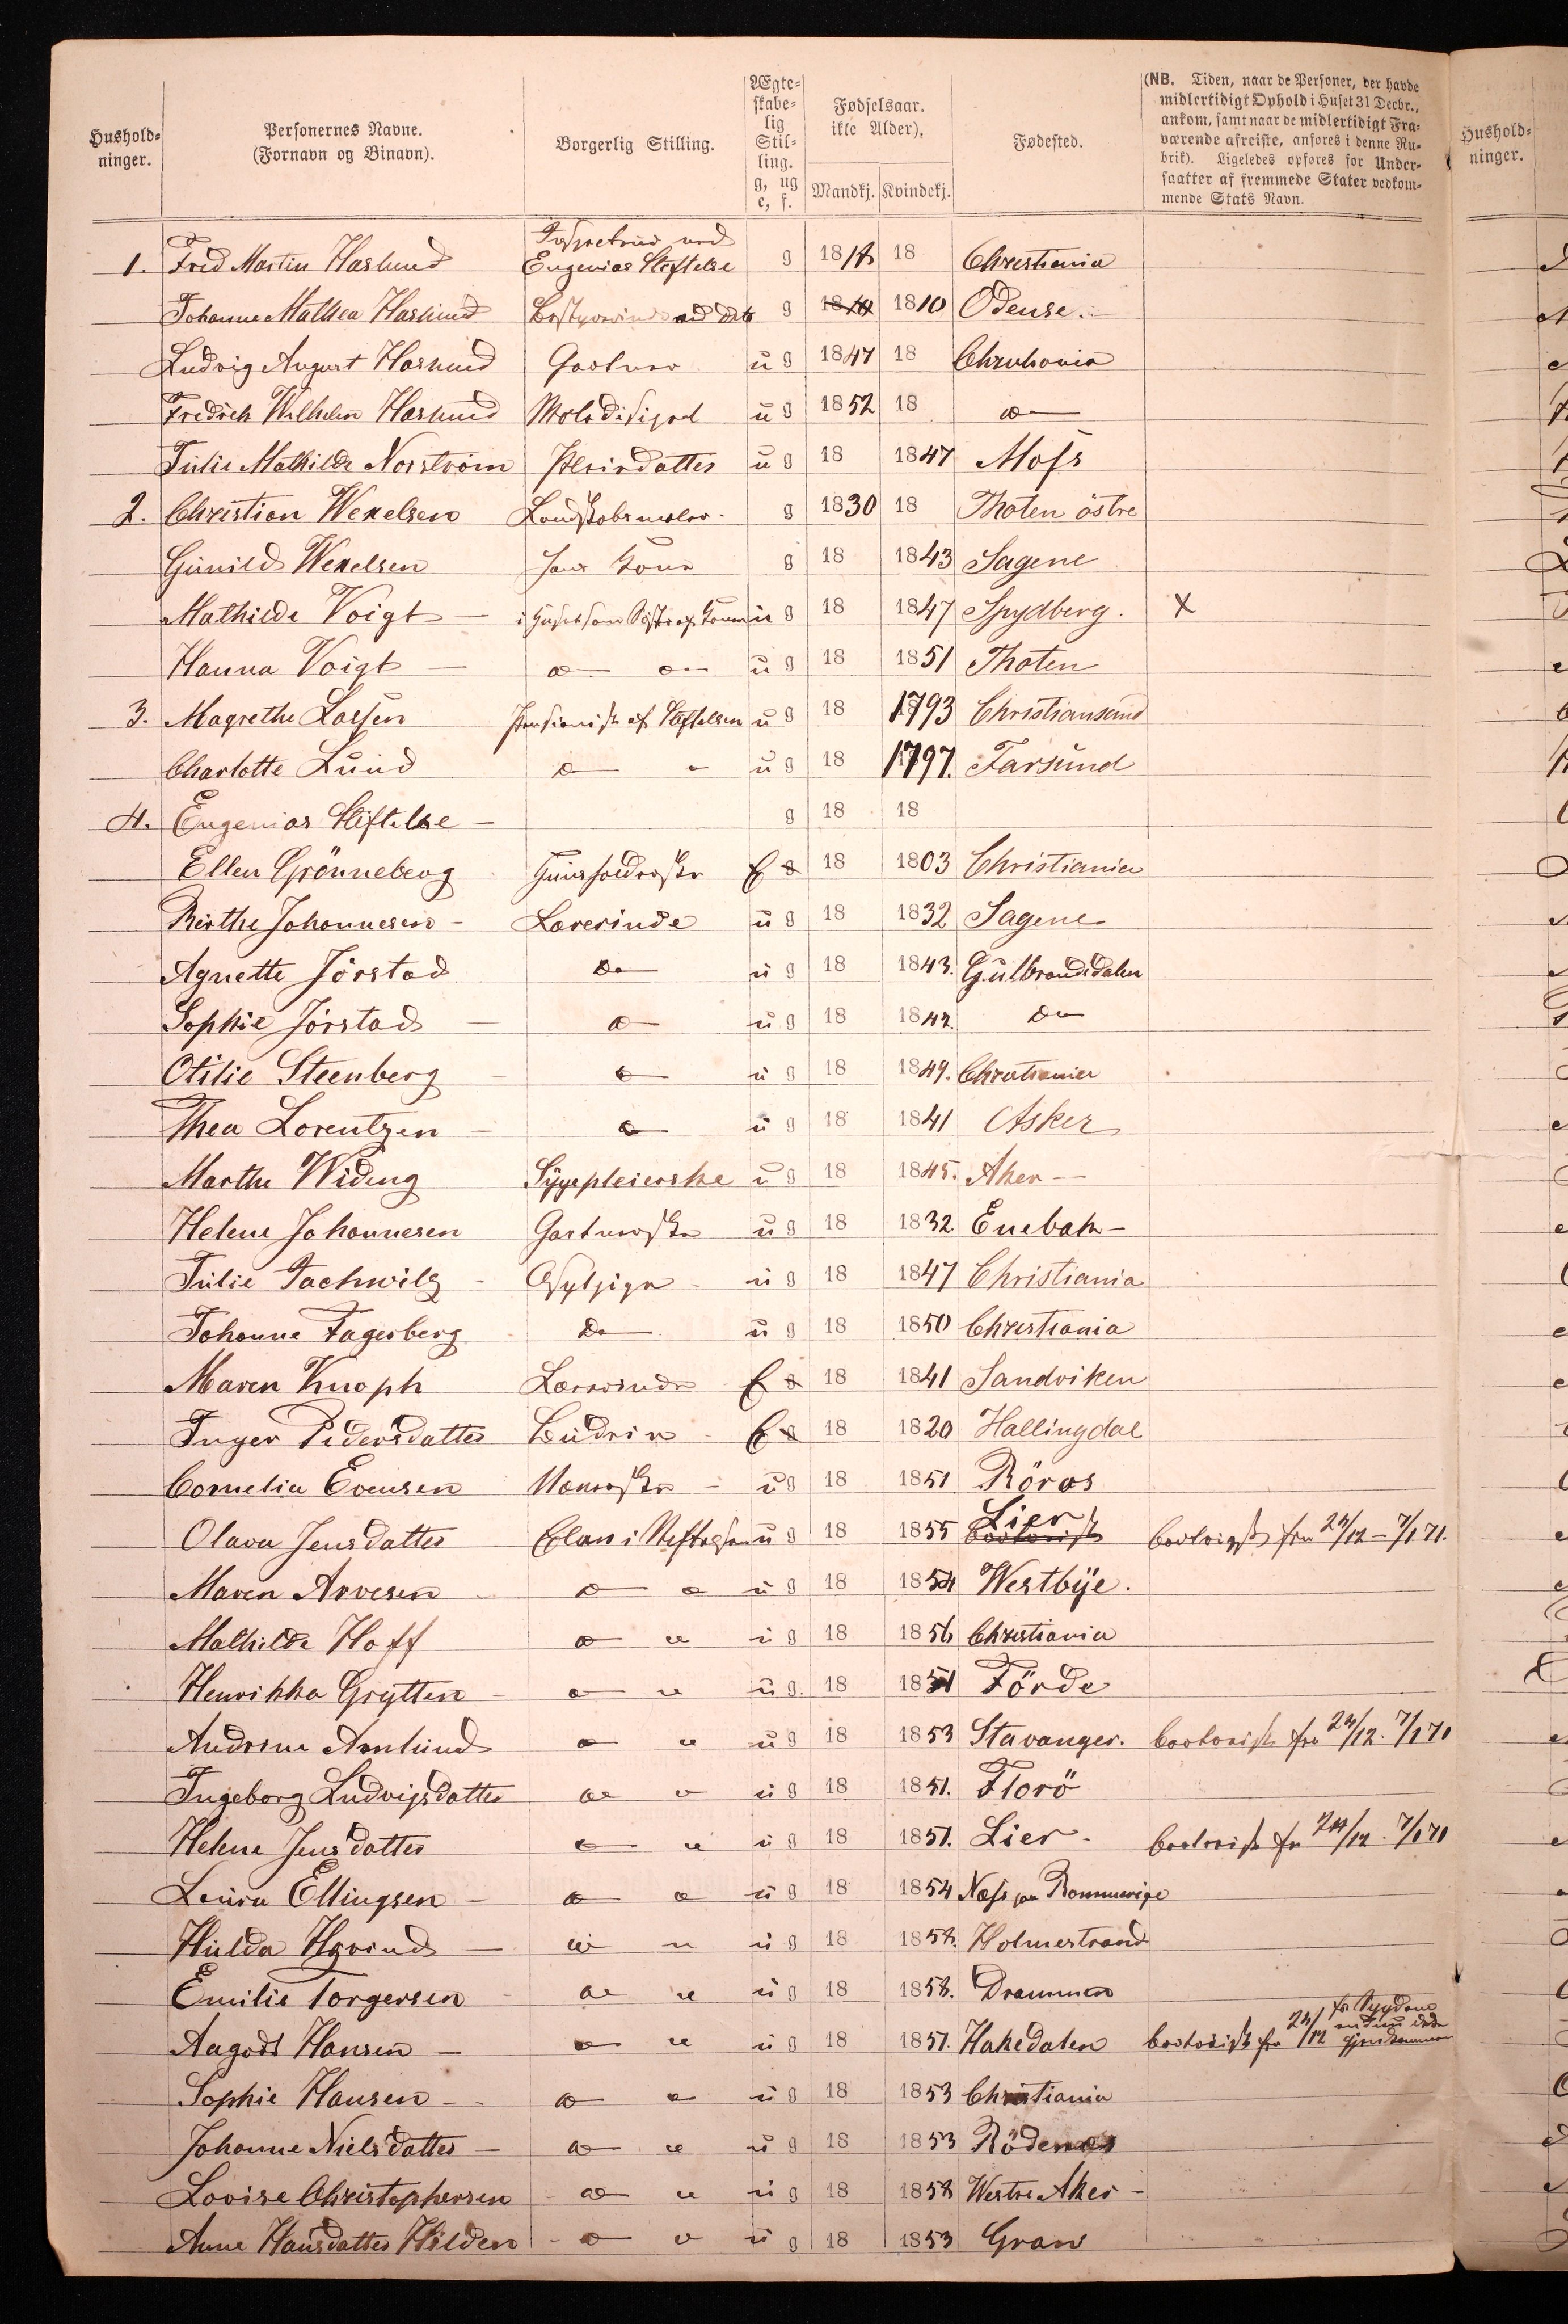 Hushold-
ninger.
Personernes Navne.
(Fornavn og Binavn).
Borgerlig Stilling.
Ægte-
skabe-
lig
Stil-
ling.
g, ug
e, f.
Fødselsaar.
ikke Alder),
Mandkj. Kvindekj.
Fødested.
(NB. Tiden, naar de Personer, der havde
midlertidigt Ophold i Huset 31 Decbr.,
ankom, samt naar de midlertidigt Fra-
værende afreiste, anføres i denne Ru-
brik). Ligeledes opføres for Under-
saatter af fremmede Stater vedkom-
mende Stats Navn.
Hushold-
ninger.
Inspecteur ved
1. Fred Martin Haslund Eugenias Stiftelse g 18 18 Christiania
Johanne Mathea Haslund g 1810 Odense.
Ludvig August Haslund Gartner u g 1847 18 Christiania
Fredrik Wilhelm Haslund u g 1852 18 do
Julie Mathilde Norström u g 18 1847 Moss
2. Christian Wexelsen Landskabsmaler g 1830 18 Thoten östre
Gunild Wexelsen hans Kone g 18 1843 Sagene
Mathilde Voigt u g 18 1847 Spydberg. X
Hanna Voigt do do u g 18 1851 Thoten
3. Magrethe Lassen Pensionist af Stiftelsen u g 18 1793 Christiansand
Charlotte Lund do " u g 18 1797. Farsund
4. Eugenias Stiftelse g 18 18
Ellen Grönneberg Huusholderske E 18 1803 Christiania
Birthe Johannesen Lærerinde u g 18 1832 Sagene
Agnette Jörstad Do u g 18 1843. Gulbrandsdalen
Sophie Jörstad do u g 18 1842. Do
Otilie Steenberg do u g 18 1849. Christiania
Thea Lorentzen do u g 18 1841 Asker
Marthe Widing Sygepleierske u g 18 1845. Aker
Helene Johannesen Gartnerske u g 18 1832. Enebak
Julie u g 18 1847 Christiania
Johanne Fagerberg Do u g 18 1850 Christiania
Maren Knoph Lærerinde E 18 1841 Sandviken
Inger Pedersdatter Budeie E 18 1820 Hallingdal
Cornelia Evensen u g 18 1851 Röros
Olava Jensdatter Elev i Stiftelsen u g 18 1855 Lier bortreist fra 23/12 - 7/1 71.
Maren Arvesen do do u g 18 1854 Westbye.
Mathilde Hoff do do u g 18 1856 Christiania
Henrikka Grytten do do u g. 18 1851 Förde
Andrine Arnlund do do u g 18 1853 Stavanger. bortreist fra 23/12. 7/1 71
Ingeborg Ludvigsdatter do do u g 18 1851. Florö
Helene Jensdatter do do u g 18 1851. Lier bortreist fra 24/12. 7/1 71
Laura Ellingsen do do u g 18 1854 Næss paa Rommerige
Hulda do do u g 18 1858. Holmestrand
Emilie Torgersen do do u g 18 1858. Drammen
for Sygdom
Aagodt Hansen do do u g 18 1851. Hakedalen bortreist fra 23/12 endnu ikke
Sophie Hansen do do u g 18 1853 Christiania
Johanne Nielsdatter do do u g 18 1853 Rödenæs
Lovise Christophersen do do u g 18 1858 Westre Aker
Anne Hansdatter Hilden do do u g 18 1853 Gran